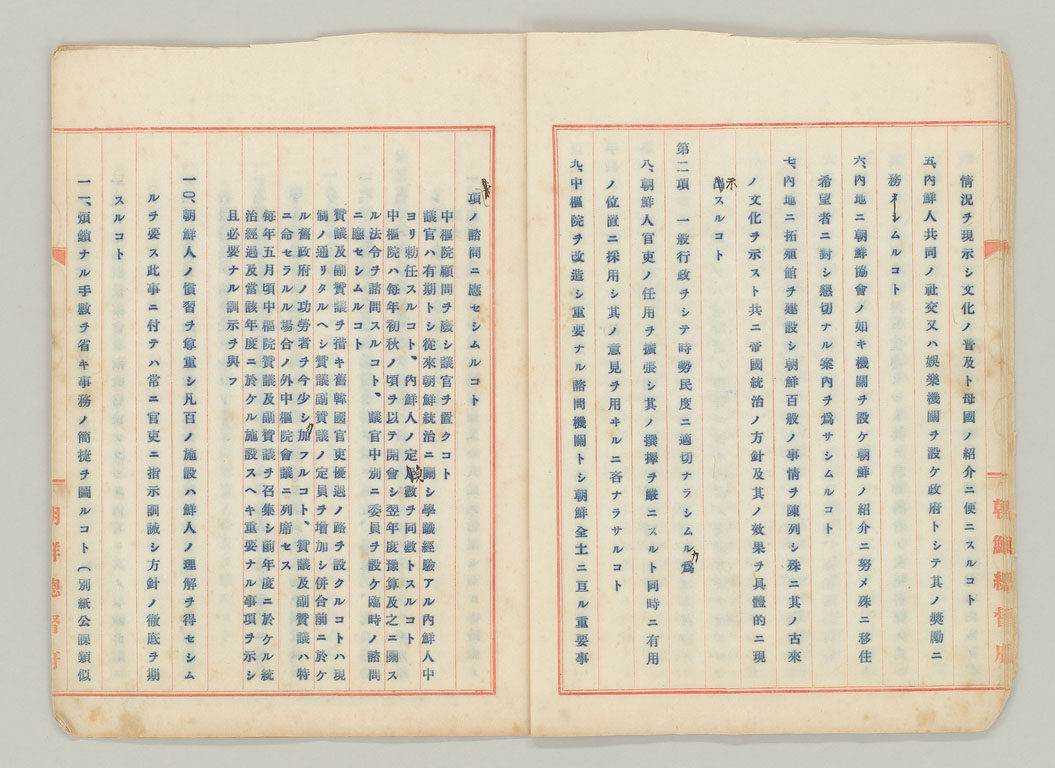 情況ヲ現示シ文化ノ普及ト母國ノ紹介ニ便ニスルコト
五、內鮮人共同ノ社交又ハ娛樂機關ヲ設ケ政府トシテ其ノ奬勵ニ
務メシムルコト
六、內地ニ朝鮮協會ノ如キ機關ヲ設ケ朝鮮ノ紹介ニ努メ殊ニ移住
希望者ニ對シ懇切ナル案內ヲ爲サシムルコト
七、內地ニ拓殖館ヲ建設シ朝鮮百般ノ事情ヲ陳列シ殊ニ其ノ古來
ノ文化ヲ示スト共ニ帝國統治ノ方針及其ノ效果ヲ具體的ニ現
示スルコト
第二項 一般行政ヲシテ時勢民度ニ適切ナラシムル爲
カ
八、朝鮮人官吏ノ任用ヲ擴張シ其ノ撰擇ヲ嚴ニスルト同時ニ有用
ノ位置ニ採用シ其ノ意見ヲ用ヰルニ吝ナラサルコト
九、中樞院ヲ改造シ重要ナル諮問機關トシ朝鮮全土ニ亘ル重要事
朝鮮總督府
項ノ諮問ニ應セシムルコト
中樞院顧問ヲ廢シ議官ヲ置クコト
議官ハ有期トシ從來朝鮮統治ニ關シ學識經驗アル內鮮人中
ヨリ勅任スルコト、內鮮人ノ定員數ヲ同數トスルコト
中樞院ハ每年初秋ノ頃ヲ以テ開會シ翌年度豫算及之ニ關ス
ル法令ヲ諮問スルコト、議官中別ニ委員ヲ設ケ臨時ノ諮問
ニ應セシムルコト
贊議及副贊議ヲ措キ舊韓國官吏優遇ノ路ヲ設クルコトハ現
制ノ通リタルヘシ贊議副贊議ノ定員ヲ增加シ併合前ニ於ケ
ル舊政府ノ功勞者ヲ今少シ加フルコト、贊議及副贊議ハ特
ニ命セラルル場合ノ外中樞院會議ニ列席セス
每年五月頃中樞院贊議及副贊議ヲ召集シ前年度ニ於ケル統
治經過及當該年度ニ於ケル施設スヘキ重要ナル事項ヲ示シ
且必要ナル訓示ヲ與フ
一〇、朝鮮人ノ慣習ヲ尊重シ凡百ノ施設ハ鮮人ノ理解ヲ得セシム
ルヲ要ス此事ニ付テハ常ニ官吏ニ指示訓誡シ方針ノ徹底ヲ期
スルコト
一一、煩鎖ナル手數ヲ省キ事務ノ簡捷ヲ圖ルコト(別紙公課類似
朝鮮總督府